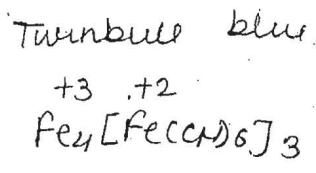 Turnbull blue
+3 +2
Fe4[Fe(CN)6]3